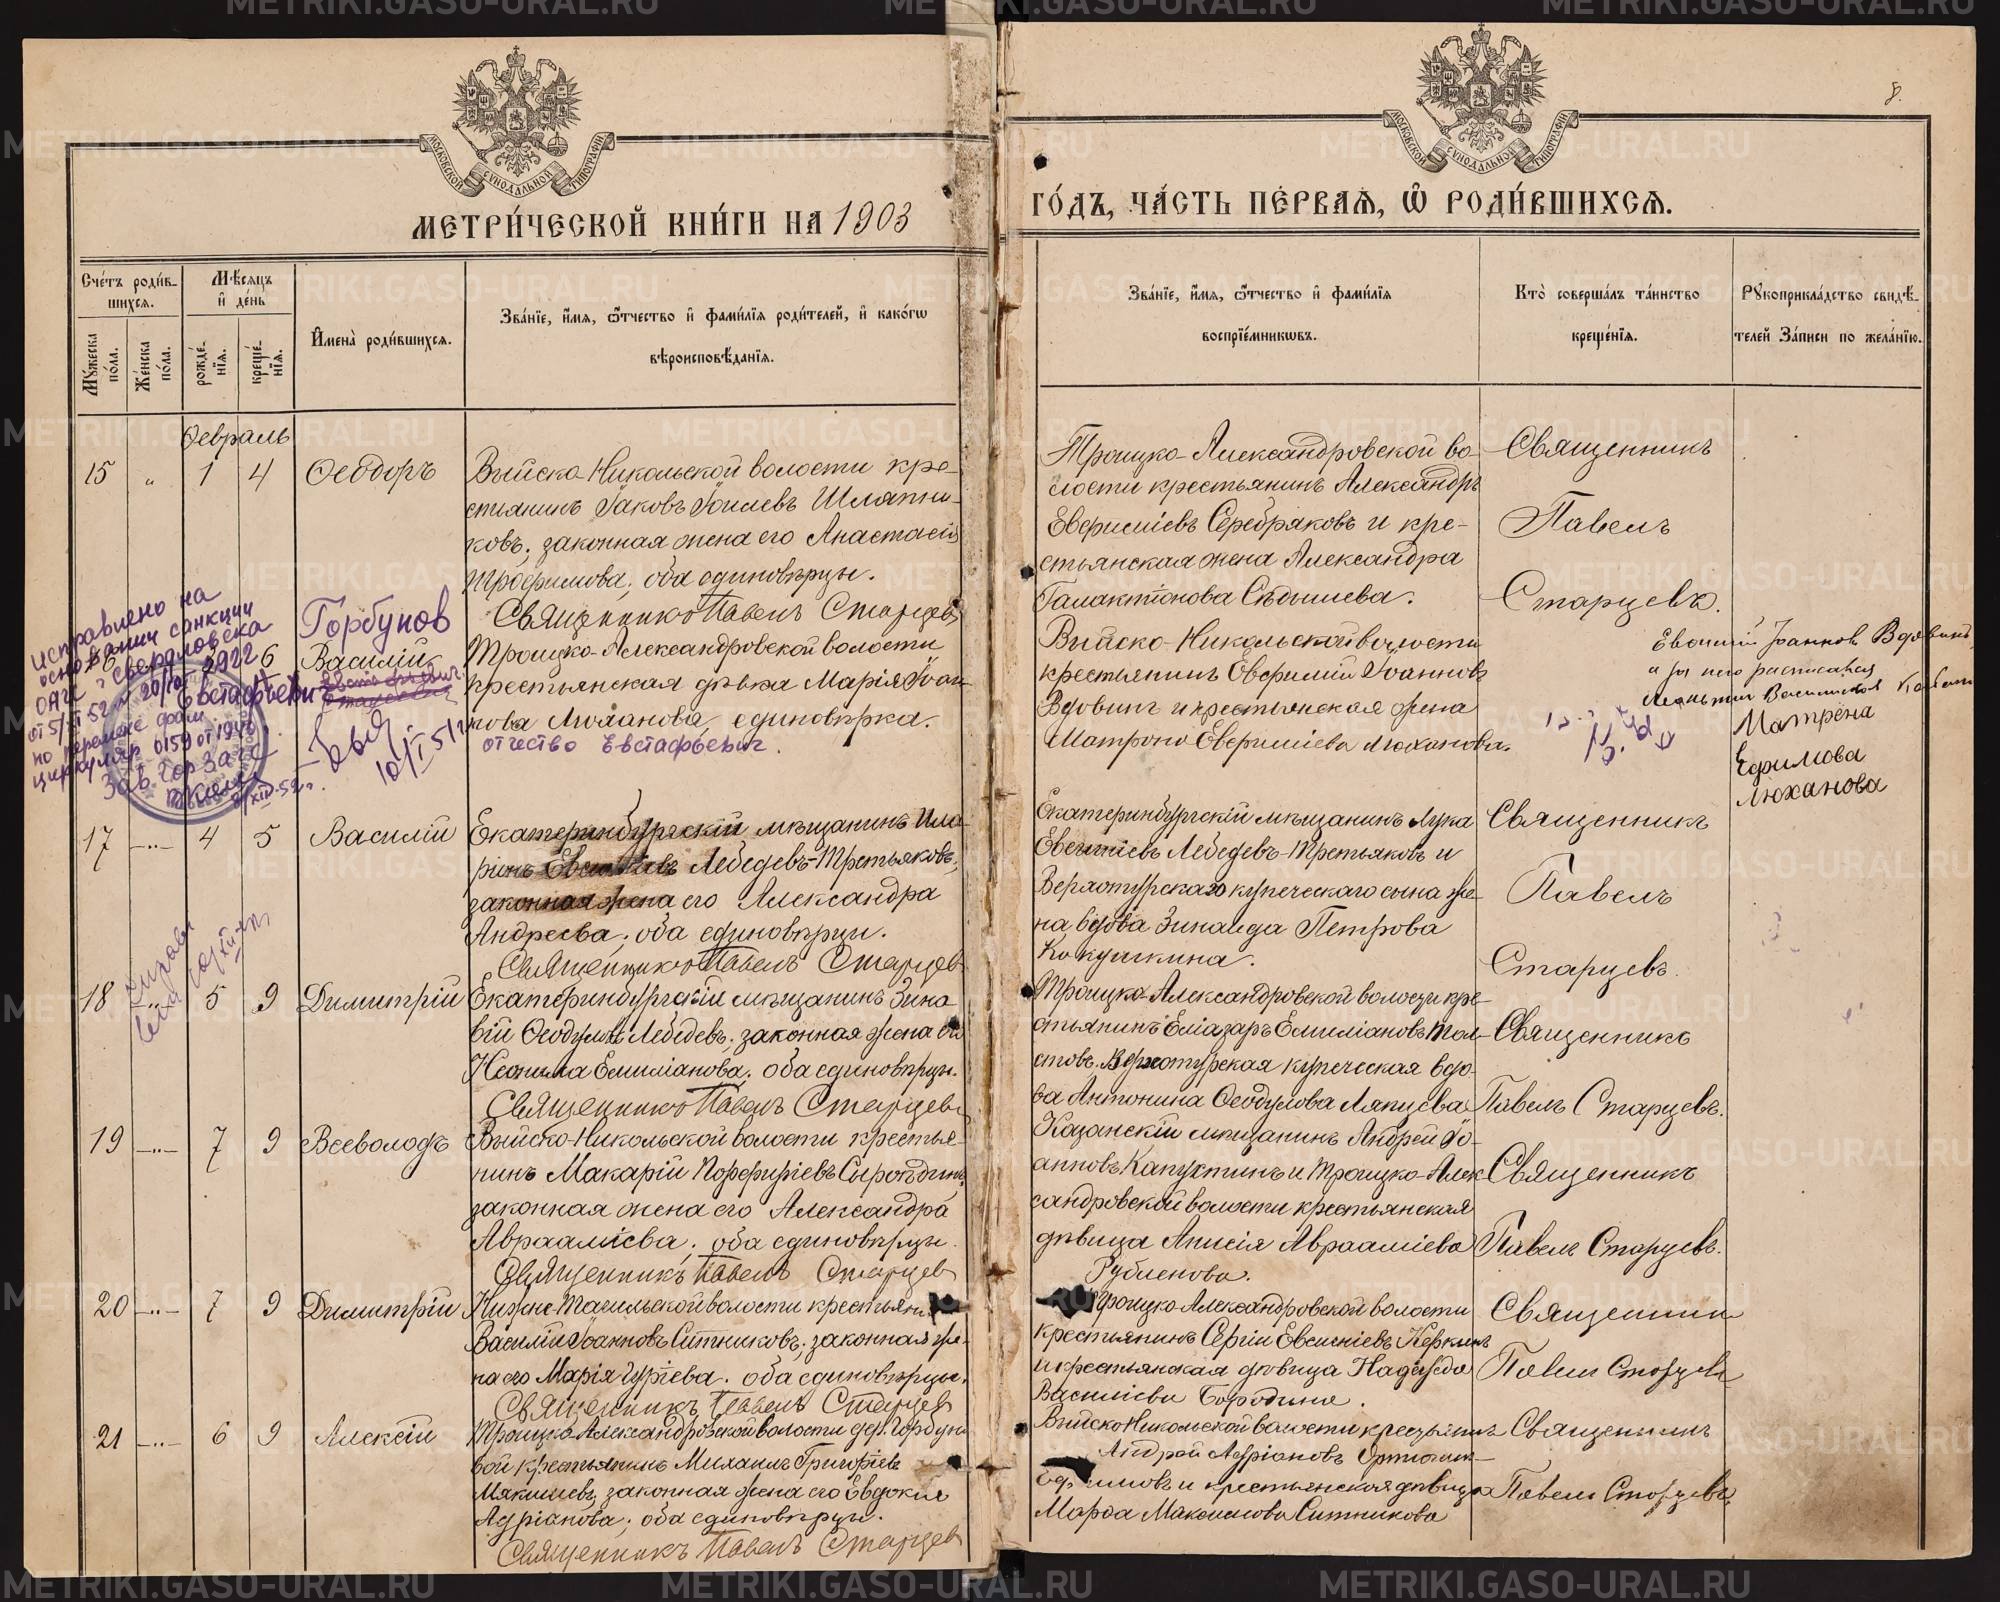 8.
МОСКОВСКОЙ СѴНОДАЛЬНОЙ ТИПОГРАФІИ
МОСКОВСКОЙ СѴНОДАЛЬНОЙ ТИПОГРАФІИ
МЕТРИ́ЧЕСКОЙ КНИ́ГИ НА 1903
ГО́ДЪ, ЧА́СТЬ ПЕ́РВАѦ, Ѽ РОДИ́ВШИХСѦ.
Сче́тъ роди́в-
шихсѧ.
Мꙋ́жеска по́ла.
Же́нска по́ла.
Мѣ́сѧцъ
и҆ де́нь
рожде́-
нїѧ.
креще́-
нїѧ.
И҆мена̀ роди́вшихсѧ.
Зва́нїе, и҆́мѧ, ѻ҆́тчество и҆ фами́лїѧ роди́телей, и҆ како́гѡ
вѣроисповѣ́данїѧ.
Зва́нїе, и҆́мѧ, ѻ҆́тчество и҆ фами́лїѧ
воспрїе́мникѡвъ.
Кто̀ соверша́лъ та́инство
креще́нїѧ.
Рꙋкоприкла́дство свидѣ́-
телей За́писи по жела́нїю.
Февраль
15 " 1 4 Ѳеодоръ
Выйско-Никольской волости кре-
стьянинъ Іаковъ Шляпни-
ковъ; законная жена его Анастасія
Трофимова; оба единовѣрцы.
Священникъ Павелъ Старцевъ
Троицко-Александровской во-
лости крестьянинъ Александръ
Серебряковъ и кре-
стьянская жена Александра
Галактіонова Сѣдышева.
Священникъ
Павелъ
Старцевъ.
исправлено на
основании санкции
г. Свердловска
циркуляр 0159 от
Зав. Гор Загс
Горбунов
6 Василій
Евстафьевич
Троицко-Александровской волости
крестьянская дѣвка Марія Іоан-
нова Люханова, единовѣрка.
отчество Евстафьевич.
Выйско-Никольской волости
крестьянинъ Іоанновъ
Вдовинъ и крестьянская жена
Матрона Люханова.
Іоаннов Вдовинъ
а за него расписался
Матрена
Ефимова
Люханова
17 " 4 5 Василій
Екатеринбургскій мѣщанинъ Ила-
ріонъ Лебедевъ-Третьяковъ;
законная жена его Александра
Андреева; оба единовѣрцы.
Священникъ Павелъ Старцевъ
Екатеринбургскій мѣщанинъ Лука
Лебедевъ-Третьяковъ и
Верхотурскаго купеческаго сына же-
на, вдова Зинаида Петрова
Кокушкина.
Священникъ
Павелъ
Старцевъ.
18 " 5 9 Димитрій
Екатеринбургскій мѣщанинъ Зино-
вій Ѳеодуловъ Лебедевъ; законная жена его
Неонила Емиліанова; оба единовѣрцы.
Священникъ Павелъ Старцевъ
Троицко-Александровской волости кре-
стьянинъ Еліазаръ Емиліановъ Тол-
стовъ, Верхотурская купеческая вдо-
ва Антонина Ѳеодулова Ляпцева
Священникъ
Павелъ Старцевъ.
19 " 7 9 Всеволодъ
Выйско-Никольской волости крестья-
нинъ Макарій Порфиріевъ
законная жена его Александра
Авраамiева; оба единовѣрцы.
Священникъ Павелъ Старцевъ
Казанскій мѣщанинъ Андрей Іо-
анновъ Капустинъ и Троицко-Алек-
сандровской волости крестьянская
дѣвица Анисія Авраамiева
Рубленова.
Священникъ
Павелъ Старцевъ.
20 " 7 9 Димитрій
Нижне-Тагильской волости крестьянинъ
Василій Іоанновъ Ситниковъ; законная же-
на его Марія Гуріева. оба единовѣрцы.
Священникъ Павелъ Старцев
Троицко-Александровской волости
крестьянинъ Сергій
и крестьянская дѣвица Надежда
Василіева Бородина.
Священник
Павел Старцев
21 " 6 9 Алексій
Троицко-Александровской волости дер. Горбуно-
вой крестьянинъ Михаилъ Григоріевъ
Мякишевъ, законная жена его Евдокія
Адріанова; оба единовѣрцы.
Священникъ Павелъ Старцев
Выйско-Никольской волости крестьянинъ
Андрей Адріановъ
и крестьянская дѣвица
Марѳа Максимова Ситникова
Священникъ
Павелъ Старцевъ
METRIKI.GASO-URAL.RU